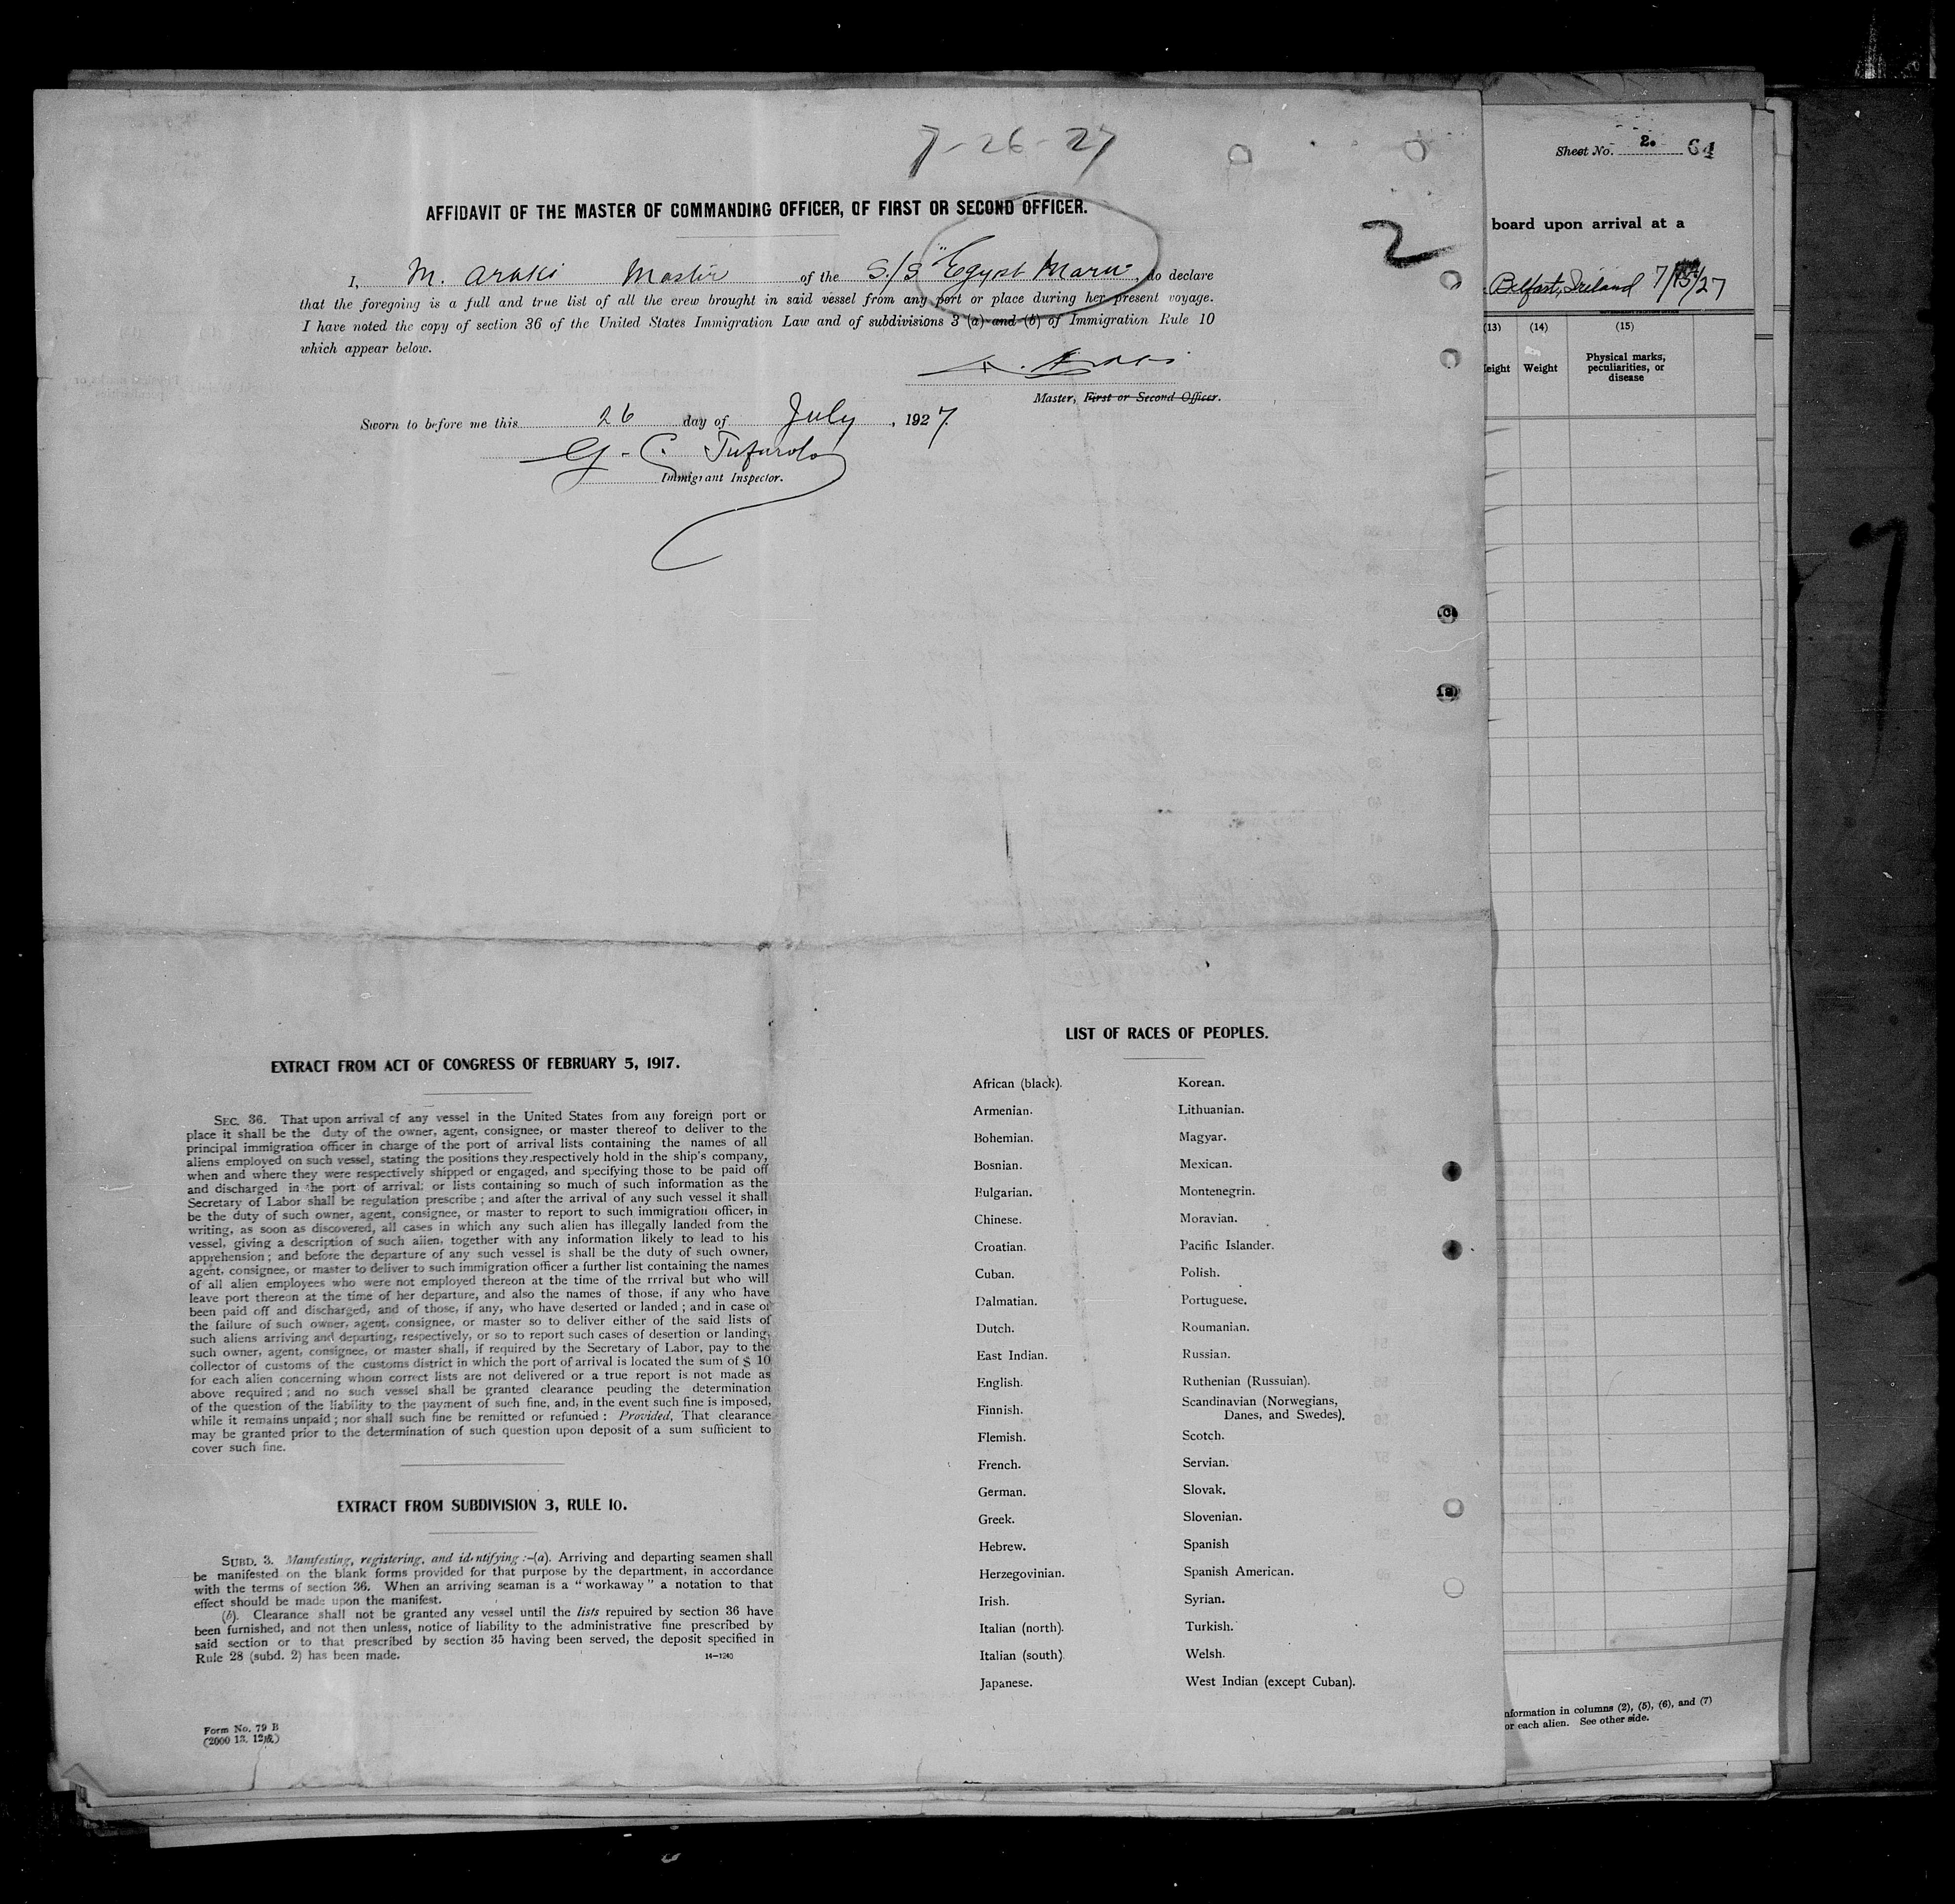 7-26-27
AFFIDAVIT OF THE MASTER OF COMMANDING OFFICER, OF FIRST OR SECOND OFFICER.
2
I, M. Araki Master of the S./S. "Egypt Maru" do declare
that the foregoing is a full and true list of all the crew brought in said vessel from any port or place during her present voyage.
I have noted the copy of section 36 of the United States Immigration Law and of subdivisions 3 (a) and (b) of Immigration Rule 10
which appear below.
Master, First or Second Officer.
Sworn to before me this 26 day of July, 1927.
G. C.
Immigrant Inspector.
EXTRACT FROM ACT OF CONGRESS OF FEBRUARY 5, 1917.
SEC. 36. That upon arrival of any vessel in the United States from any foreign port or
place it shall be the duty of the owner, agent, consignee, or master thereof to deliver to the
principal immigration officer in charge of the port of arrival lists containing the names of all
aliens employed on such vessel, stating the positions they respectively hold in the ship's company,
when and where they were respectively shipped or engaged, and specifying those to be paid off
and discharged in the port of arrival; or lists containing so much of such information as the
Secretary of Labor shall be regulation prescribe; and after the arrival of any such vessel it shall
be the duty of such owner, agent, consignee, or master to report to such immigration officer, in
writing, as soon as discovered, all cases in which any such alien has illegally landed from the
vessel, giving a description of such alien, together with any information likely to lead to his
apprehension; and before the departure of any such vessel is shall be the duty of such owner,
agent, consignee, or master to deliver to such immigration officer a further list containing the names
of all alien employees who were not employed thereon at the time of the rrrival but who will
leave port thereon at the time of her departure, and also the names of those, if any who have
been paid off and discharged, and of those, if any, who have deserted or landed; and in case of
the failure of such owner, agent, consignee, or master so to deliver either of the said lists of
such aliens arriving and departing, respectively, or so to report such cases of desertion or landing,
such owner, agent, consignee, or master shall, if required by the Secretary of Labor, pay to the
collector of customs of the customs district in which the port of arrival is located the sum of $ 10
for each alien concerning whom correct lists are not delivered or a true report is not made as
above required; and no such vessel shall be granted clearance peuding the determination
of the question of the liability to the payment of such fine, and, in the event such fine is imposed,
while it remains unpaid; nor shall such fine be remitted or refunded: Provided, That clearance
may be granted prior to the determination of such question upon deposit of a sum sufficient to
cover such fine.
EXTRACT FROM SUBDIVISION 3, RULE 10.
SUBD. 3. Manifesting, registering, and identifying:-(a). Arriving and departing seamen shall
be manifested on the blank forms provided for that purpose by the department, in accordance
with the terms of section 36. When an arriving seaman is a "workaway" a notation to that
effect should be made upon the manifest.
(b). Clearance shall not be granted any vessel until the lists repuired by section 36 have
been furnished, and not then unless, notice of liability to the administrative fine prescribed by
said section or to that prescribed by section 35 having been served, the deposit specified in
Rule 28 (subd. 2) has been made.
14-1240
Form No. 79 B
LIST OF RACES OF PEOPLES.
African (black).
Armenian.
Bohemian.
Bosnian.
Bulgarian.
Chinese.
Croatian.
Cuban.
Dalmatian.
Dutch.
East Indian.
English.
Finnish.
Flemish.
French.
German.
Greek.
Hebrew.
Herzegovinian.
Irish.
Italian (north).
Italian (south)
Japanese.
Korean.
Lithuanian.
Magyar.
Mexican.
Montenegrin.
Moravian.
Pacific Islander.
Polish.
Portuguese.
Roumanian.
Russian.
Ruthenian (Russuian).
Scandinavian (Norwegians,
Danes, and Swedes).
Scotch.
Servian.
Slovak.
Slovenian.
Spanish
Spanish American.
Syrian.
Turkish.
Welsh.
West Indian (except Cuban).
Sheet No. 2. 64
board upon arrival at a
Belfast, Ireland 7/15/27
(13) (14) (15)
eight Weight Physical marks,
peculiarities, or
disease
nformation in columns (2), (5), (6), and (7)
or each alien. See other side.